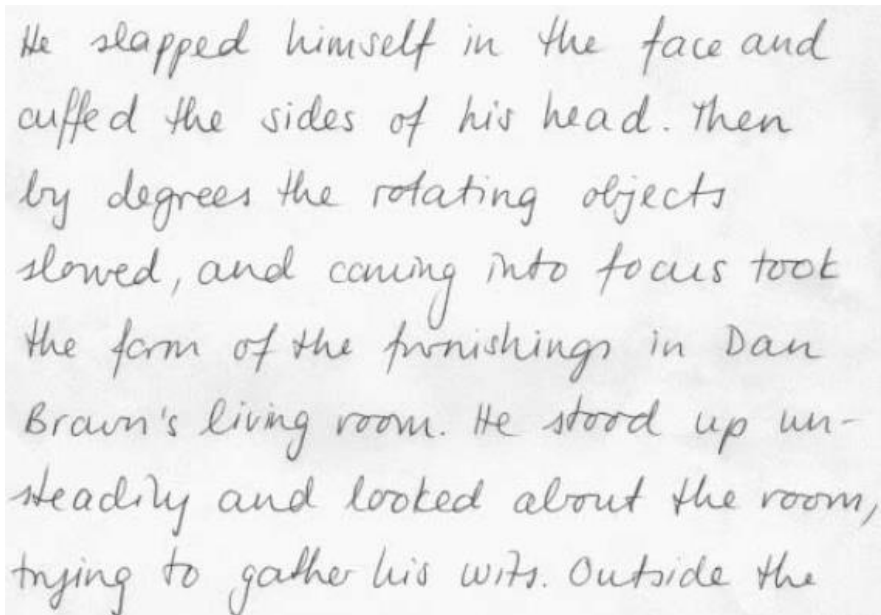 He slapped himself in the face and
cuffed the sides of his head. Then
by degrees the rotating objects
slowed, and coming into focus took
the form of the furnishings in Dan
Brown's living room. He stood up un-
steadily and looked about the room,
trying to gather his wits. Outside the